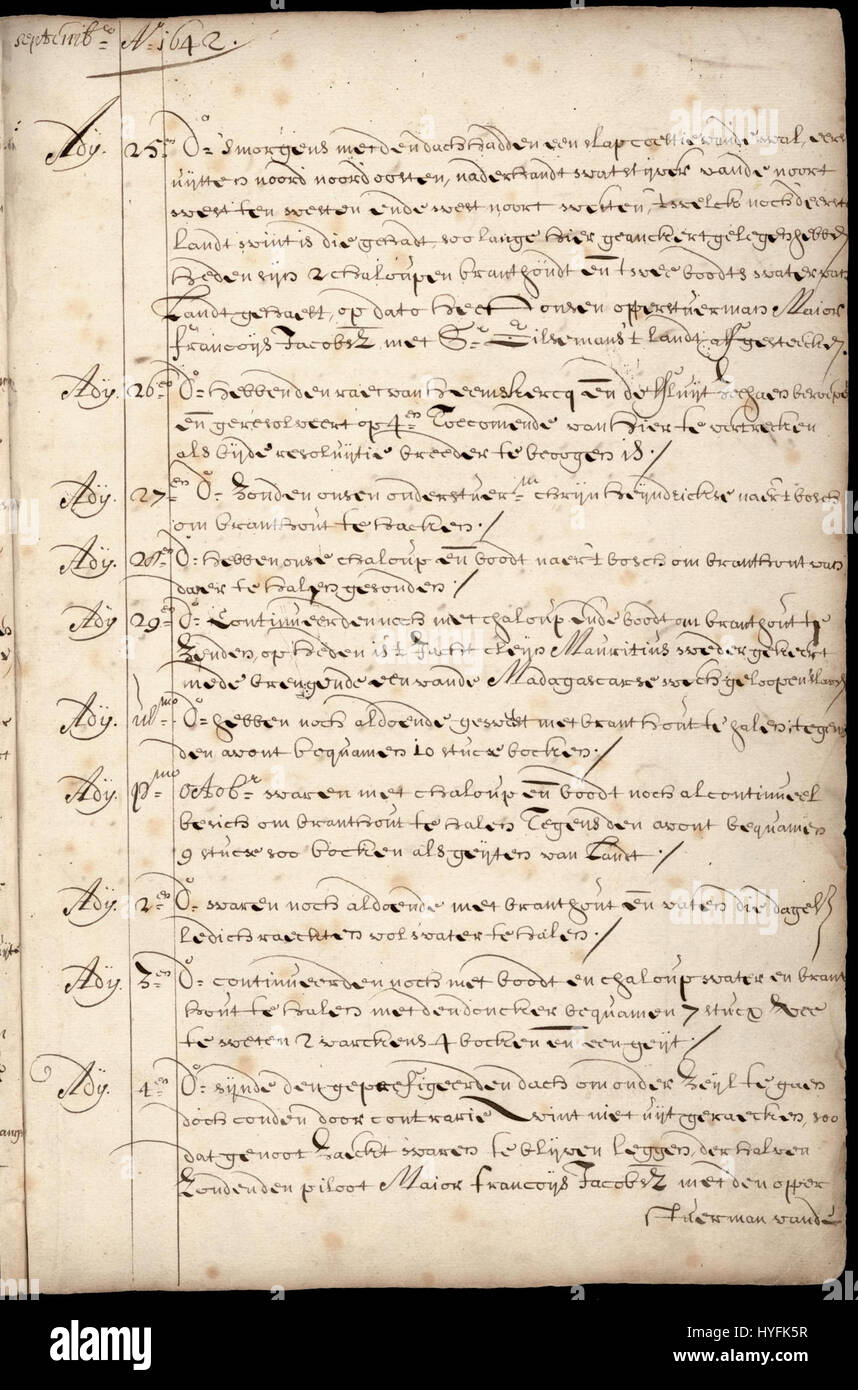 Septemb.ro A.o 1642.
Ady. 25.en D.o smorgens met den dach hadden een slap coeltie vande wal, eerst
uijtten noord noord oosten, naderhandt wat stijver vande noort
west ten westen ende west noort westen, twelck noch de eerste
Landt wint is die gehadt, soo lange hier geanckert gelegen hebben
heden sijn 2 chaloupen branthoudt en twee boodts water van
Landt gehaelt, op dato heeft onsen opperstuerman Maior
francoijs Jacobsz. met S.r Gilsemans t landt affgesteecken.
Ady. 26.en D.o hebben den raet van heemskercq en de fluijt Zeehaen beroepen
en geresolveert op 4.en Toecomende van hier te vertrecken
als bijde resoluijtie breeder te beoogen is /
Ady. 27.en D.o Zonden onsen onderstuerm.a chrijn heijndrickse naer't bosch
om branthout te hacken. /
Ady. 28.en D.o hebben onse chaloup en boodt naer't bosch om branthout van
daer te halen gesonden. /
Ady 29.en D.o Continueerden noch met chaloup ende boodt om branthout te
Zenden, op heden is t Jacht cleijn Mauritius weder gekeert
mede brengende een vande Madagascarse wech geloopen slaven
Ady. ul.mo D.o hebben noch al doende geweest met branthout te halen, tegens
den avont bequamen 10 stucx bocken. /
Ady. p.mo octob.r waren met chaloup en boodt noch al continueel
besich om branthout te halen Tegens den avont bequamen
9 stucx soo bocken als geijten van Landt. /
Ady. 2.en D.o waren noch al doende met branthout en vaten die dagel.
ledich raeckten vol water te halen. /
Ady. 3.en D.o continueerden noch met boodt en chaloup water en brant
hout te halen met den doncker bequamen 7 stucx vee
te weten 2 varckens 4 bocken en een geijt. /
Ady. 4.en D.o sijnde den geprefigeerden dach om onder Zeijl te gaen
doch conden door contrarie wint niet uijt geraecken, soo
dat genoot Zaeckt waren te blijven leggen, derhalven
Zonden den piloot Maior francoijs Jacobsz. met den opper
stuerman vande
alamy
alamy
alamy
alamy
alamy
HYFK5R
www.alamy.com